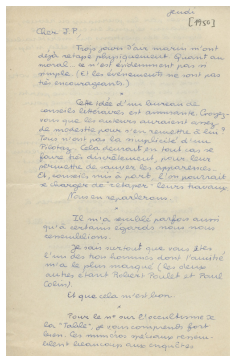 jeudi
[1950]
Cher J.P.
Trois jours d'air marin m'ont
déjà retapé physiquement. Quant au
moral, ce n'est évidemment pas si
simple. (Et les événements ne sont pas
très encourageants.)
*
Cette idée d'un bureau de
conseils littéraires est amusante. Croyez-
vous que les auteurs auraient assez
de modestie pour s'en remettre à lui ?
Tous n'ont pas la simplicité d'un
Pilotaz. Cela devrait en tout cas se
faire très discrètement, pour leur
permettre de sauver les apparences.
Et, conseils mis à part, l'on pourrait
se charger de "retaper" leurs travaux.
Nous en reparlerons.
*
Il m'a semblé parfois aussi
qu'à certains égards nous nous
ressemblions.
Je sais surtout que vous êtes
l'un des trois hommes dont l'amitié
m'a le plus marqué (les deux
autres étant Robert Poulet et Paul
Colin).
Et que cela m'est bon.
*
Pour le n° sur l'occultisme de
la "Table", je vous comprends fort
bien. Les numéros spéciaux ressem-
blent beaucoup aux enquêtes